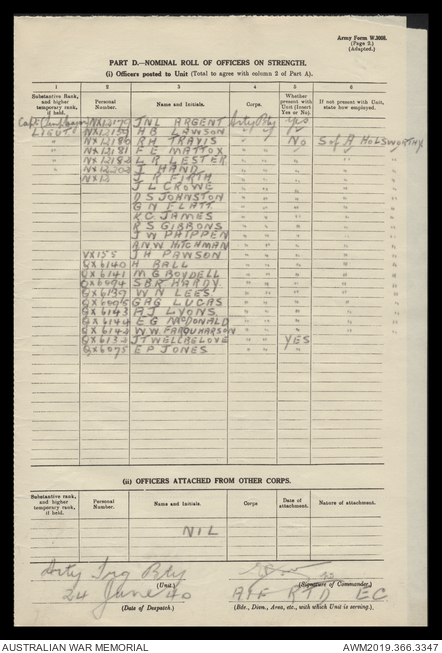 Army Form W.3008.
(Page 2.)
(Adapted.)
PART D.—NOMINAL ROLL OF OFFICERS ON STRENGTH.
(i) Officers posted to Unit (Total to agree with column 2 of Part A).
1 2 3 4 5 6
Substantive Rank, and higher temporary rank, if held. Personal Number. Name and Initials. Corps. Whether present with Unit (Insert Yes or No). If not present with Unit, state how employed.
Capt NX12179 JNL ARGENT Arty Yes
LIEUT NX12159 HB LAWSON " " "
" NX12180 RH TRAVIS " " No S of A HOLSWORTHY
" NX12181 F E MATTOX " " "
" NX12182 L R LESTER " " "
" NX12202 J HAND " " "
NX12 L R FIRTH " " "
J L CROWE " " "
D S JOHNSTON " " "
G N FLATT " " "
K C JAMES " " "
R S GIBBONS " " "
J W PHIPPEN " " "
A N W HITCHMAN " "
VX155 J H PAWSON " " "
QX6140 H RALL " " "
QX6141 M G BOYDELL " " "
QX6094 S B R HARDY " " "
QX6139 W N LEES " " "
QX6095 GAG LUCAS " " "
QX6143 A J LYONS " " "
QX6144 E G McDONALD " " "
QX6142 W.W. FARQUHARSON " " "
QX6132 J T WELLBELOVE " " YES "
QX6075 E P JONES " " "
(ii) OFFICERS ATTACHED FROM OTHER CORPS.
Substantive rank, and higher temporary rank, if held. Personal Number. Name and Initials. Corps Date of attachment. Nature of attachment.
NIL
Arty Trg Bty
(Unit.) (Signature of Commander.)
24 June 40 AIF RTD EC
(Date of Despatch.) (Bde., Divn., Area, etc., with which Unit is serving.)
AUSTRALIAN WAR MEMORIAL AWM2019.366.3347